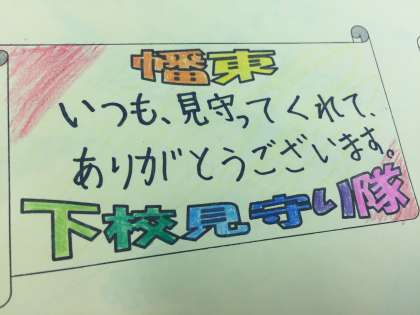 幡東
いつも、見守ってくれて、
ありがとうございます。
下校見守り隊